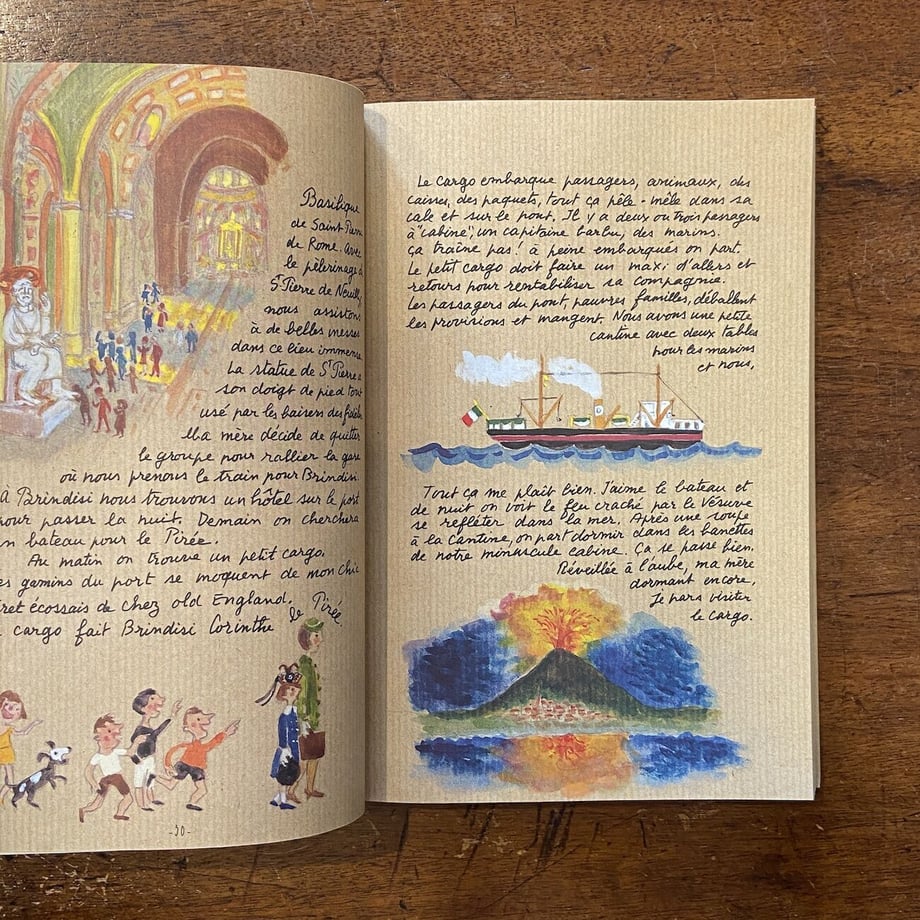 Basilique
de Saint Pierre
de Rome. Avec
le pèlerinage de
St Pierre de Neuilly,
nous assistons
à de belles messes
dans ce lieu immense
La statue de St Pierre a
son doigt de pied tout
usé par les baisers des fidèles
Ma mère décide de quitter
le groupe pour rallier la gare
où nous prenons le train pour Brindisi.
À Brindisi nous trouvons un hôtel sur le port
pour passer la nuit. Demain on cherchera
un bateau pour le Pirée.
Au matin on trouve un petit cargo.
es gamins du port se moquent de mon chic
éret écossais de chez old England.
cargo fait Brindisi Corinthe le Pirée.
-30-
Le cargo embarque passagers, animaux, des
caisses, des paquets, tout ça pêle-mêle dans sa
cale et sur le pont. Il y a deux ou trois passagers
à "cabine", un capitaine barbu, des marins.
Ça traîne pas! à peine embarqués on part.
Le petit cargo doit faire un maxi d'allers et
retours pour rentabiliser sa compagnie.
Les passagers du pont, pauvres familles, déballent
les provisions et mangent. Nous avons une petite
cantine avec deux tables
pour les marins
et nous,
Tout ça me plaît bien. J'aime le bateau et
de nuit on voit le feu craché par le Vésuve
se refléter dans la mer. Après une soupe
à la cantine, on part dormir dans les banettes
de notre minuscule cabine. Ça se passe bien.
Réveillée à l'aube, ma mère
dormant encore,
je pars visiter
le cargo.